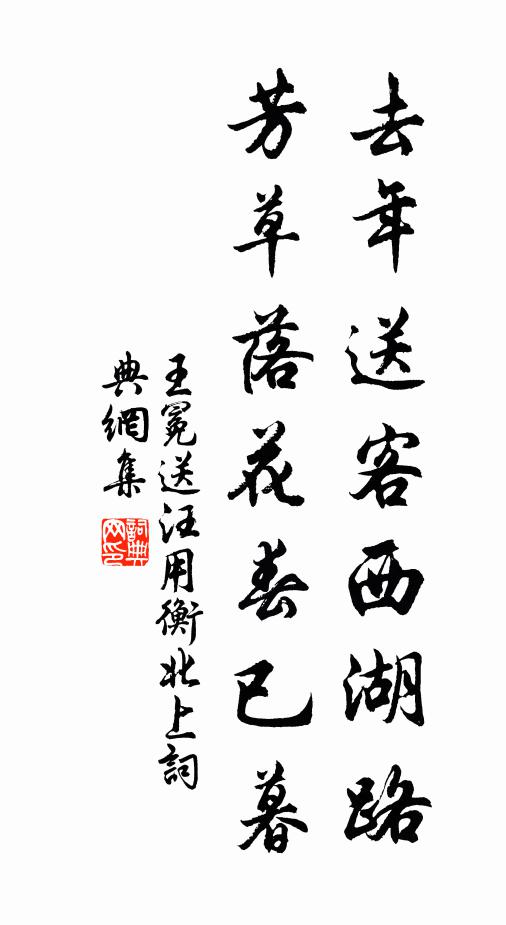 去年送客西湖路
芳草落花春已暮
王冕送汪用衡北上詞
典網集
詞典网印